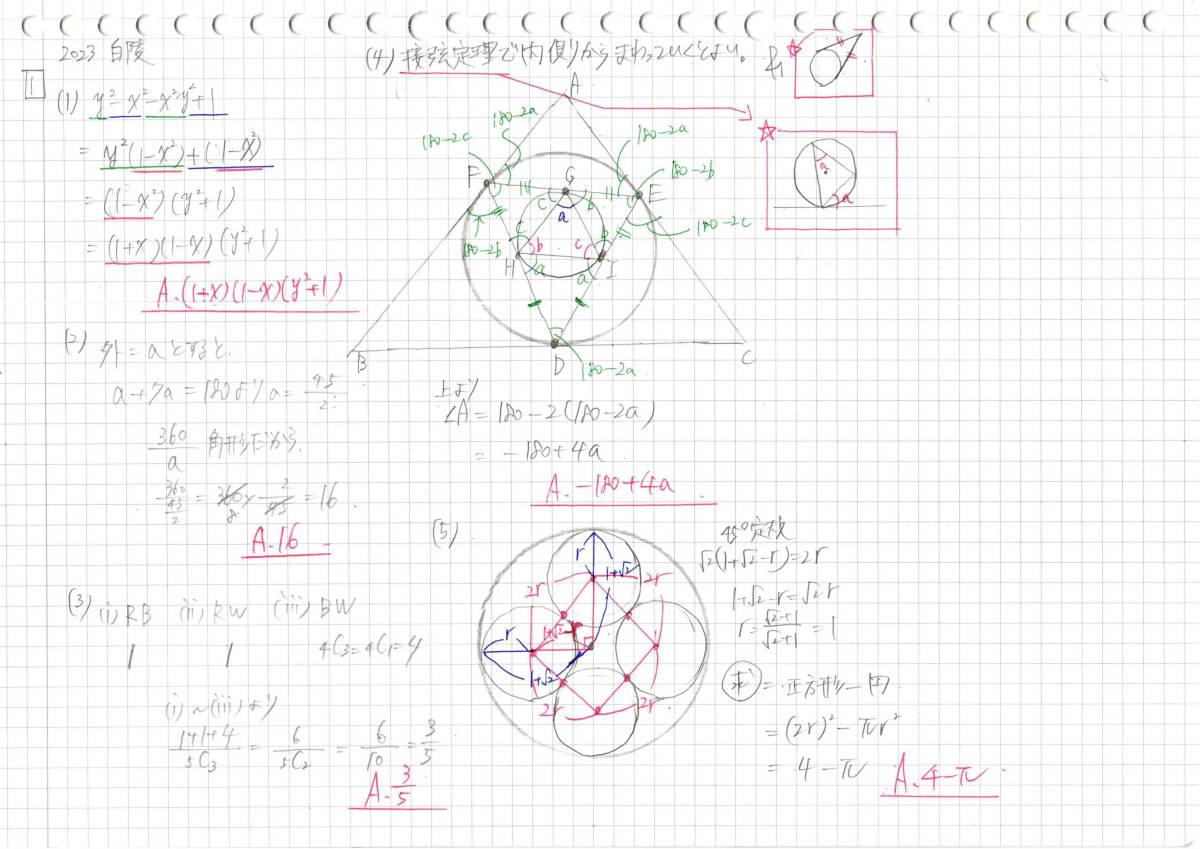 2023 白陵
1
(1) y²-x²-x²y²+1
= y²(1-x²)+(1-x²)
= (1-x²)(y²+1)
= (1+x)(1-x)(y²+1)
A.(1+x)(1-x)(y²+1)
(2) 外=aとすると
a+7a=180よりa=45/2
360/a 角形だから
360/(45/2) = 360×2/45 = 16
8
A.16
(3) (i) RB (ii) RW (iii) BW
1 1 4C3=4C1=4
(i)~(iii)より
(1+1+4)/5C3 = 6/5C2 = 6/10 = 3/5
A. 3/5
(4) 接弦定理で内側からまわっていくとよい。
A
180-2a
180-2c
180-2a
F G E
180-2b
c b
a
c b
180-2c
180-2b
b c
H I
a a
B D C
180-2a
a
a
上より
∠A=180-2(180-2a)
= -180+4a
A. -180+4a
(5)
r 1+√2
2r 2r
r 1+√2-r
1+√2
2r 2r
45°定規
√2(1+√2-r)=2r
1+√2-r=√2r
r=(√2+1)/(√2+1)=1
求=正方形-円
=(2r)²-πr²
= 4-π
A.4-π